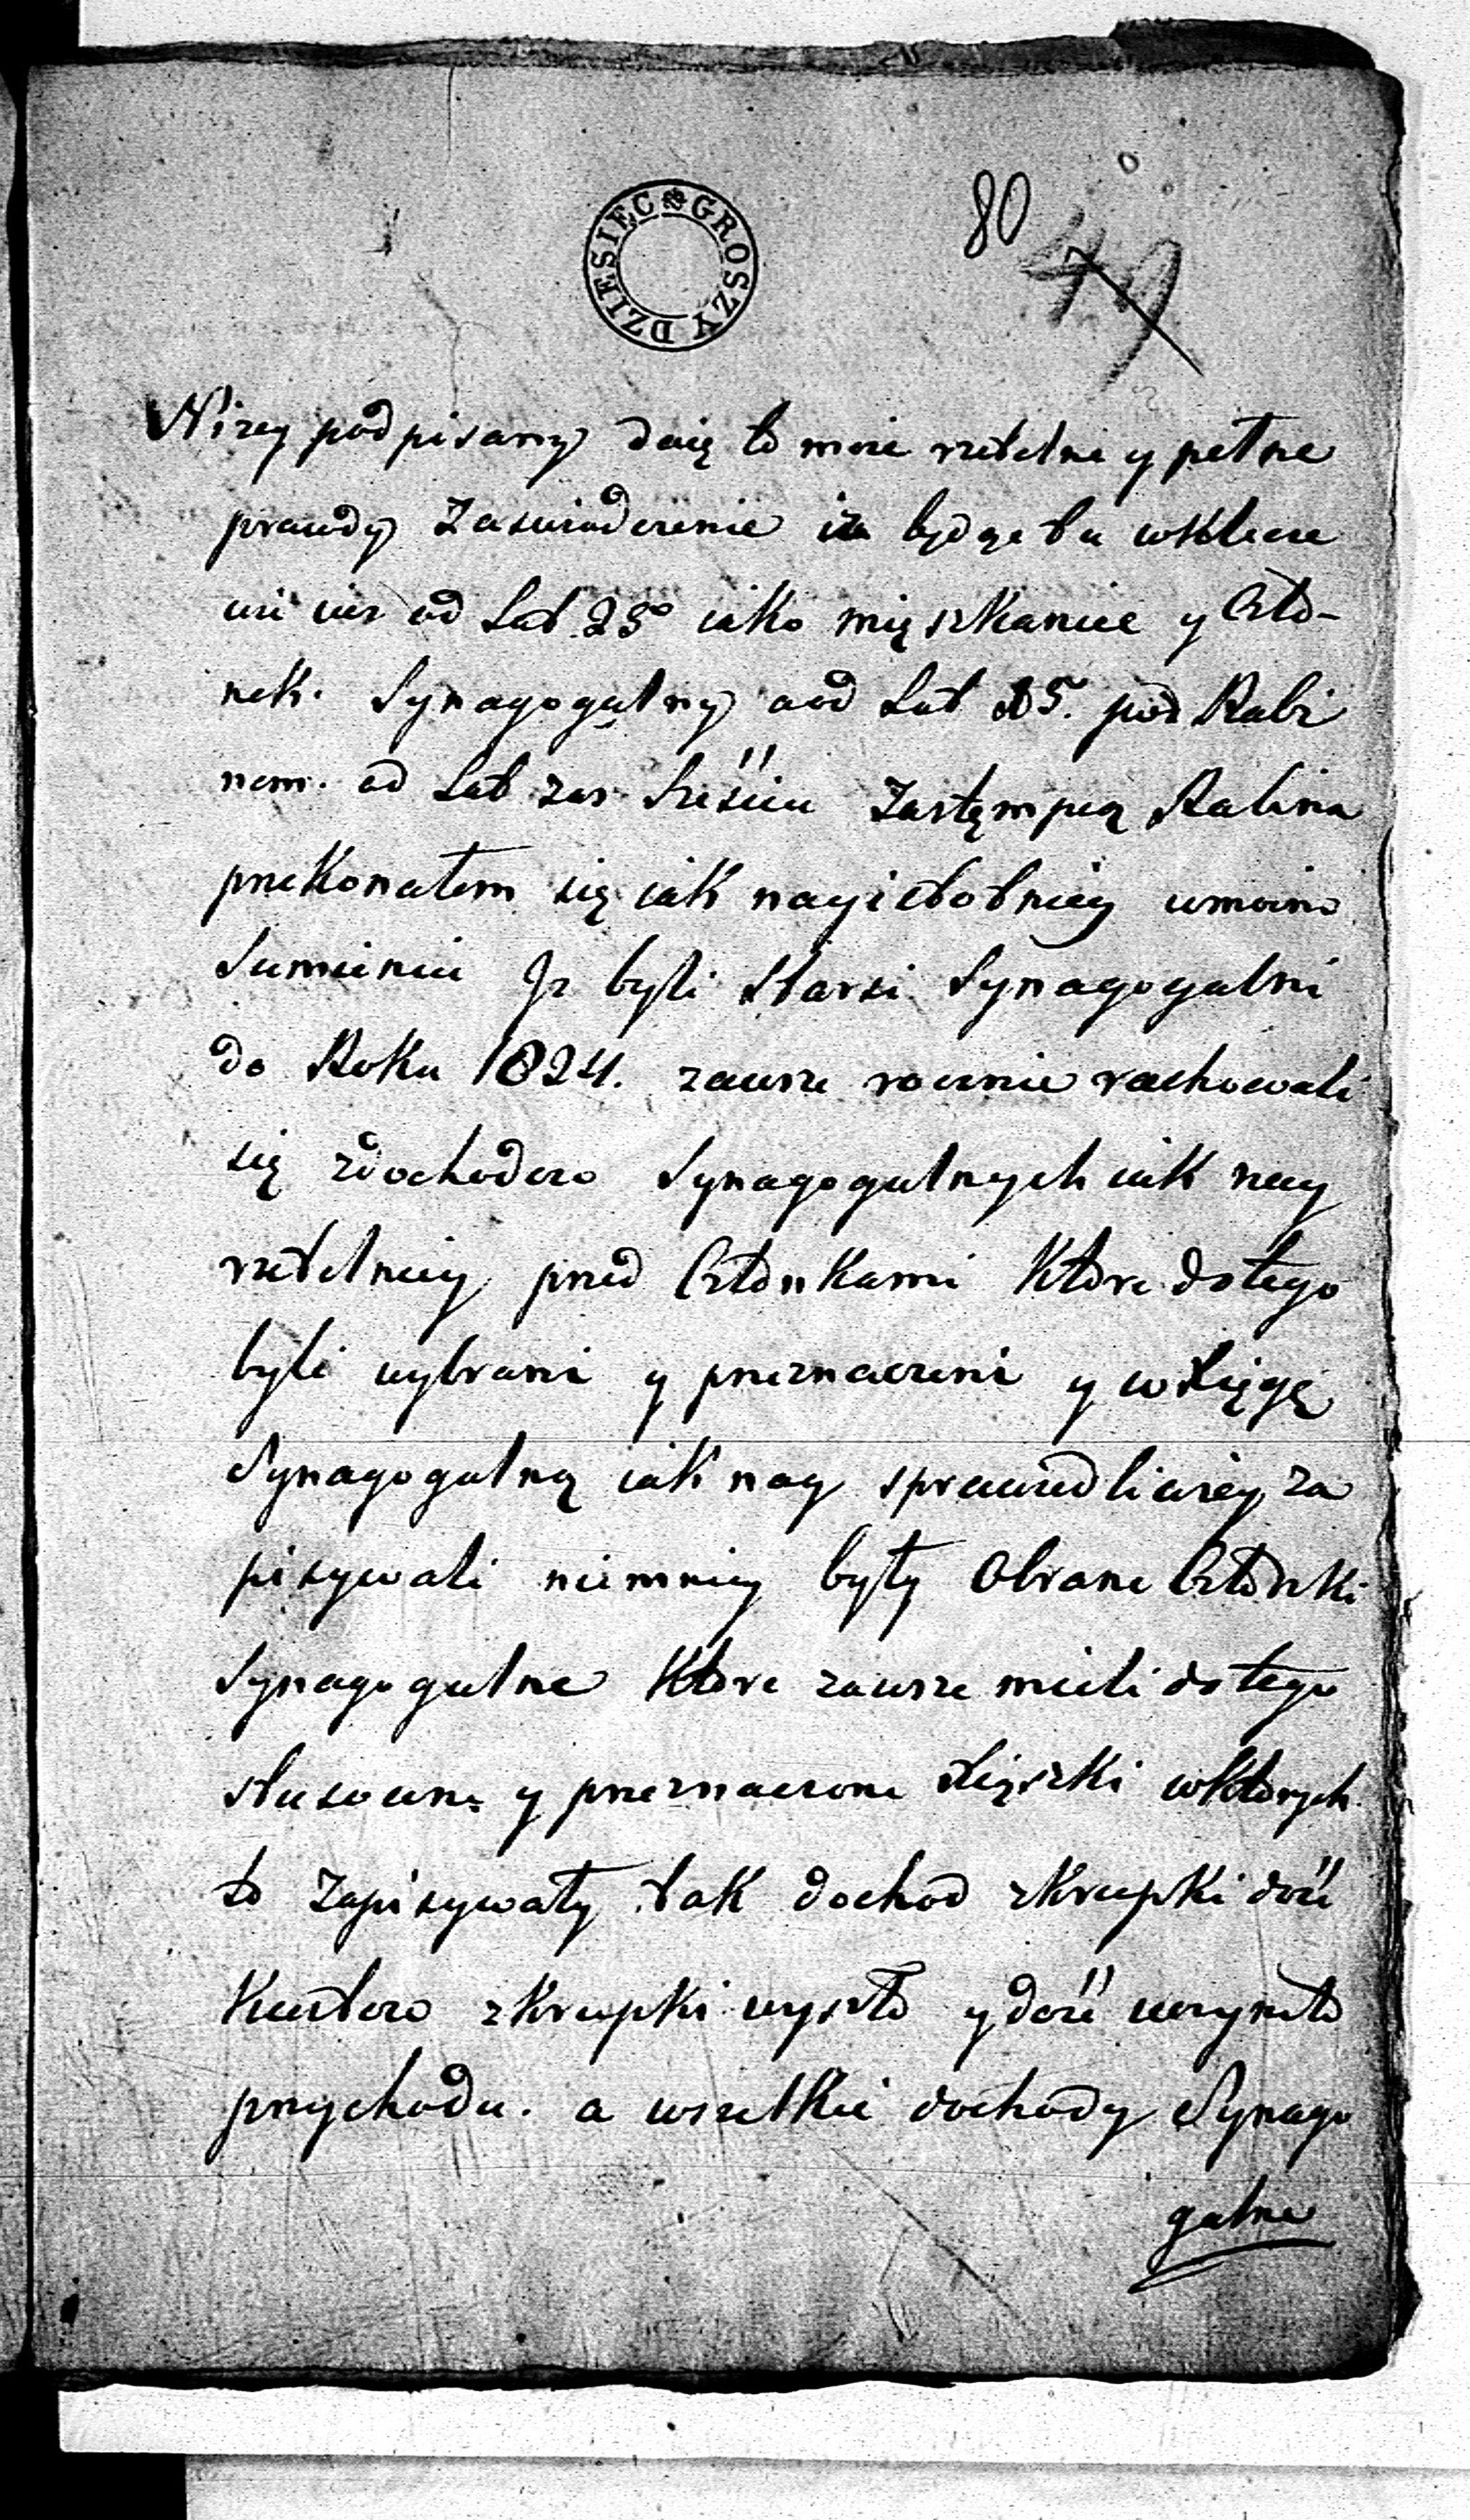 80
49
DZIESIĘC GROSZY
Nizey podpisany daię to moie rzetelne y pełne
prawdy Zaswiadczenie iz będąc tu wsklecze
wie iusz od Lat 25 iako mięszkaniec y Czło-
nek. Synagogalny a od Lat 15. pod Rabi
nem. od Lat zas Sześciu Zastęmpcą Rabina
przekonałem się iak nayistotniey w moim
Sumieniu Jz byli Starsi Synagogalni
do Roku 1824. zawsze rocznie rachowali
się zdochodow Synagogalnych iak nay
rzetelniey przed Członkami Ktore do tego
byli wybrani y przeznaczeni y w Xięgę
Synagogalną iak nay sprawiedliwiey za
pisywali niemniey były Obrane Członki
Synagogalne Ktore zawsze mieli do tego
stusowne y przeznaczone Xięszki w Ktorych
to Zapisywały tak dochod zkrupki dość
Kwitow zkrupki wyszło y dość uczyniło
przychodu. a wszelkie dochody Synago
galne